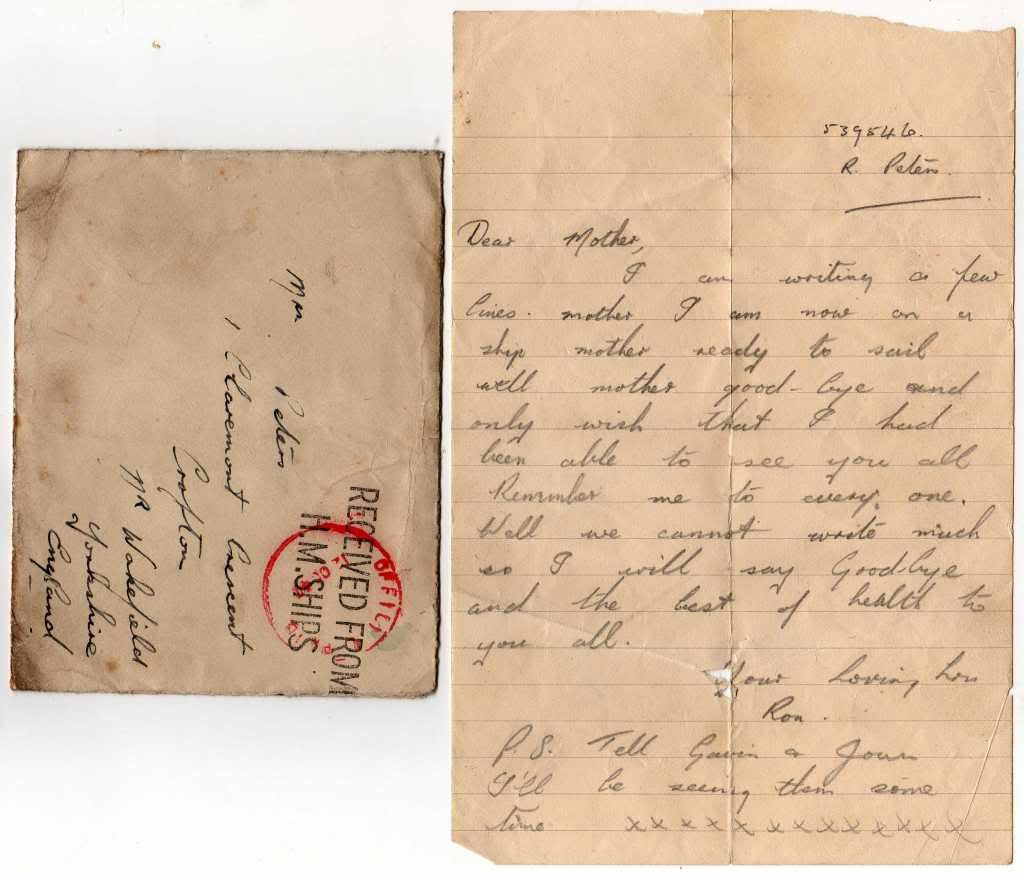 Mrs Peters
1 Claremont Crescent
Crofton
NR Wakefield
Yorkshire
England
RECEIVED FROM
H.M. SHIPS
OFFIC
539546.
R. Peters.
Dear Mother,
I am writing a few
lines. mother I am now on a
ship mother ready to sail
well mother good-bye and
only wish that I had
been able to see you all
Remember me to every one.
Well we cannot write much
so I will say Goodbye
and the best of health to
you all.
Your Loving Son
Ron.
P.S. Tell Gavin &
I'll be seeing them some
time x x x x x x x x x x x x x